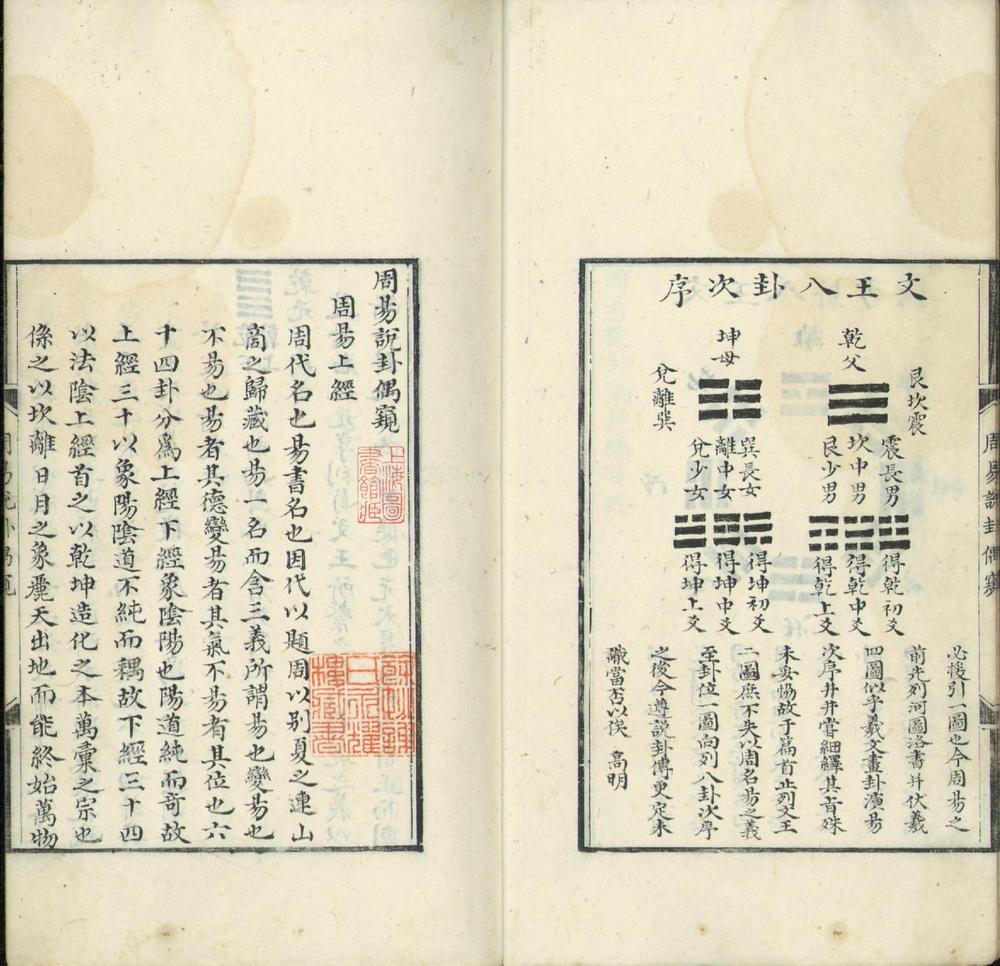 文王八卦次序
乾父
坤母
艮坎震
兌離巽
震長男
坎中男
艮少男
巽長女
離中女
兌少女
得乾初爻
得乾中爻
得乾上爻
得坤初爻
得坤中爻
得坤上爻
必援引一圖也今周易之
前先列河圖洛書并伏羲
四圖似乎羲文畫卦演易
次序井井嘗細繹其旨殊
未妥愓故于篇首止列文王
二圖庶不失以周名易之義
至卦位一圖向列八卦次序
之後今遵說卦傳更定未
識當否以俟高明
周易說卦偶窺
周易說卦偶窺
周易上經
周代名也易書名也因代以題周以別夏之連山
商之歸藏也易一名而含三義所謂易也變易也
不易也易者其德變易者其氣不易者其位也六
十四卦分爲上經下經象陰陽也陽道純而奇故
上經三十以象陽陰道不純而耦故下經三十四
以法陰上經首之以乾坤造化之本萬彙之宗也
係之以坎離日月之象麗天出地而能終始萬物
周易說卦偶窺
上海圖
書館藏